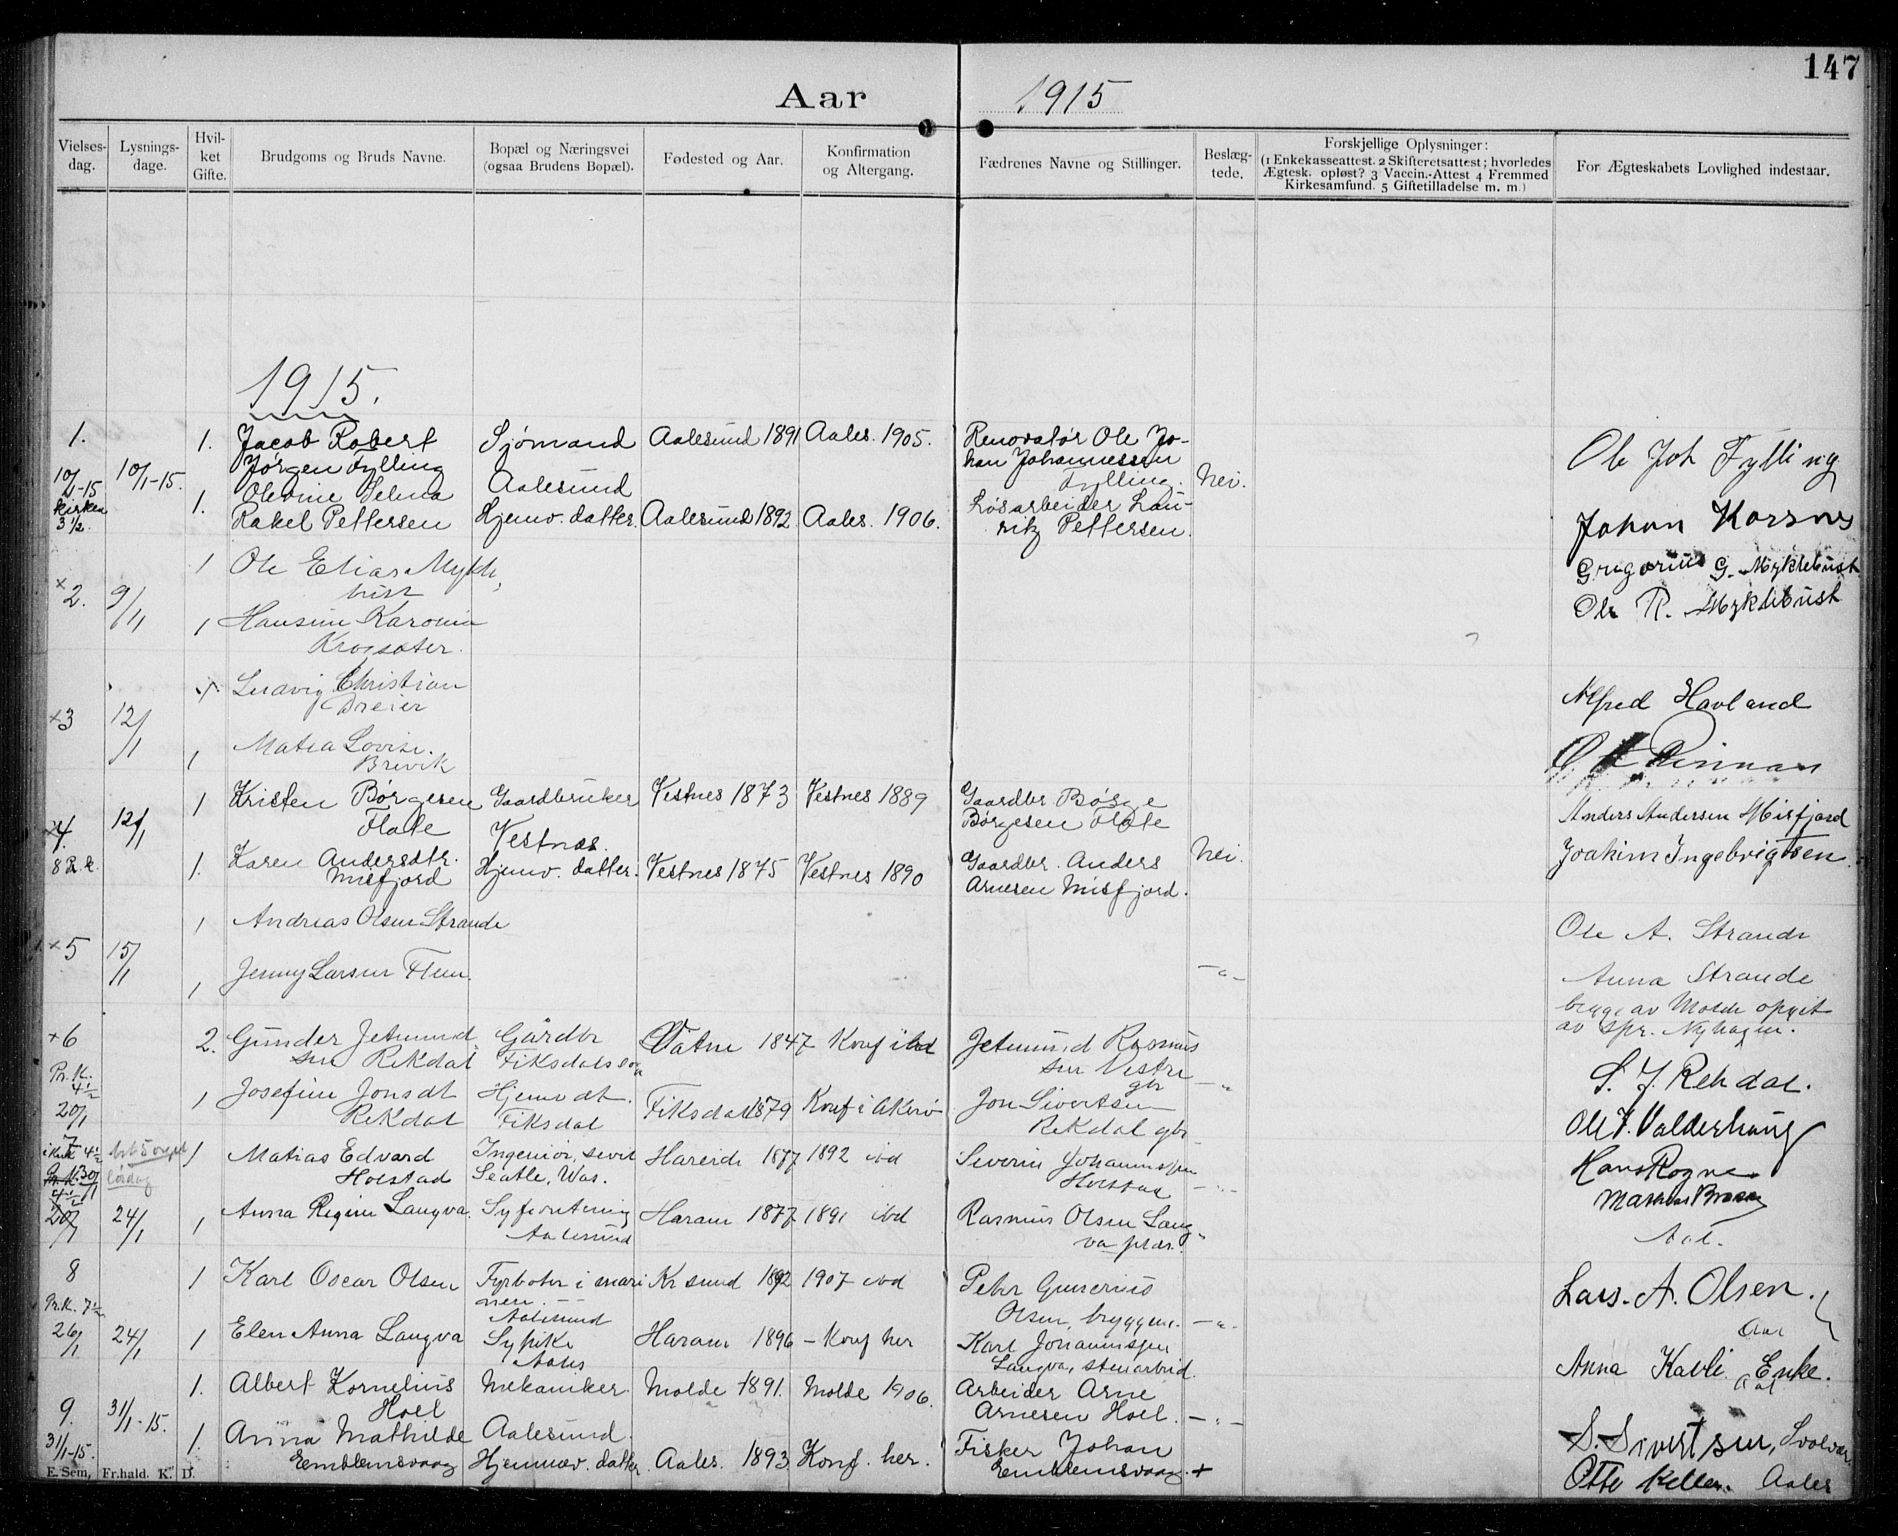 147
Aar 1915
Vielses-
dag.
Lysnings-
dage.
Hvil-
ket
Gifte.
Brudgoms og Bruds Navne.
Bopæl og Næringsvei
(ogsaa Brudens Bopæl).
Fødested og Aar.
Konfirmation
og Altergang.
Fædrenes Navne og Stillinger.
Beslæg-
tede.
Forskjellige Oplysninger:
(1 Enkekasseattest. 2 Skifteretsattest; hvorledes
Ægtesk. opløst? 3 Vaccin.-Attest 4 Fremmed
Kirkesamfund. 5 Giftetilladelse m. m.)
For Ægteskabets Lovlighed indestaar.
1915.
1. 1. Jacob Robert Sjømand Aalesund 1891 Aales. 1905. Renovatør Ole Jo-
10/1-15 10/1-15. Jørgen Fylling Aalesund han Johannessen Ole Joh Fylling
kirken 1. Olevine Selma Fylling. Nei.
3 1/2. Rakel Pettersen Hjemv. datter. Aalesund 1892 Aales. 1906. Løsarbeider Lau-
ritz Pettersen. Johan Korsnes
1 Ole Elias Mykle
bust Gregorius G. Myklebust
×2. 9/1 1 Hansine Karonia Ole R. Myklebust
Krogsæter.
Ludvig Christian
Dreier Alfred Havland
×3 12/1 1 Matea Lovise
Brevik Rinnan
1 Kristen Børgesen Gaardbruker Vestnes 1873 Vestnes 1889 Gaardbr Børge
×4. 12/1 Flate Vestnes. Børgesen Flate Anders Andersen Misfjord
8 1. Karen Andersdtr. Hjemv. datter. Vestnes 1875 Vestnes 1890 Gaardbr. Anders Nei. Joakim Ingebrigtsen.
Misfjord Arnesen Misfjord.
1 Andreas Olsen Strande Ole A. Strande
×5 15/1 1 Jenny Larsen Flem. -"- Anna Strande
begge av Molde opgit
av spr. Nyhagen.
×6 2. Gunder Jetmund Gårdbr Vatne 1847 Konf ibd Jetmund Rasmus
sen Rekdal Fiksdal sen Vestre
Pr. K. 4 1/2 gbr -"- S. J. Rekdal.
20/1 1 Josefine Jonsdt Hjemv dt. Fiksdal 1879 Konf i Akerø Jon Sivertsen
Rekdal Fiksdal Rekdal gbr Ole J. Valderhaug
7 1 Matias Edvard Ingeniør, sivil Hareide 1877 1892 ibd Severin Johannssen
Holstad Seatle, Was. Holstad -"- Hans Rogne
24/1 1 Anna Regine Langva. Syforretning Haram 1877 1891 ibd Rasmus Olsen Lang
Aalesund va Aal.
8 1 Karl Oscar Olsen Fyrbøter i mari Kr sund 1892 1907 ibd Peter Gunerius
Pr. K. 7 1/2 nen. Aalesund Olsen, bryggem. -"- Lars. A. Olsen.
26/1 24/1 1 Elen Anna Langva Sypike Haram 1896 - Konf her Karl Johannssen Aal
Aales Langva, stenarbeid. Anna Kavli Enke.
Aal
1. Albert Kornelius Mekaniker Molde 1891. Molde 1906. Arbeider Arne
9. 31/1-15. Hoel Arnesen Hoel. -"-
31/1-15. 1. Anna Mathilde Aalesund. Fisker Johan S. Sivertsen, Svolvær
Eemblemsvaag Hjemmev. datter. Aales. 1893 Konf. her. Eemblemsvaag. + Otto Aales
E. Sem, Fr.hald. K. D.